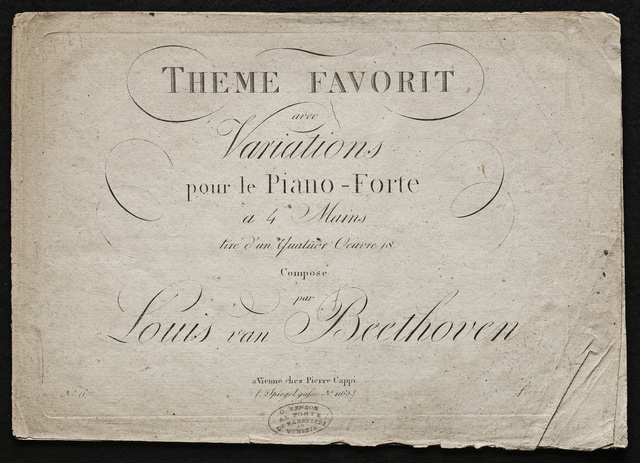 THEME FAVORIT
avec
Variations
pour le Piano-Forte
a 4 Mains
tiré d'un Quatuor Oeuvre 18.
Composé
par
Louis van Beethoven
a Vienne chez Pierre Cappi
(Spiegelgasse No 1163.)
VENEZIA